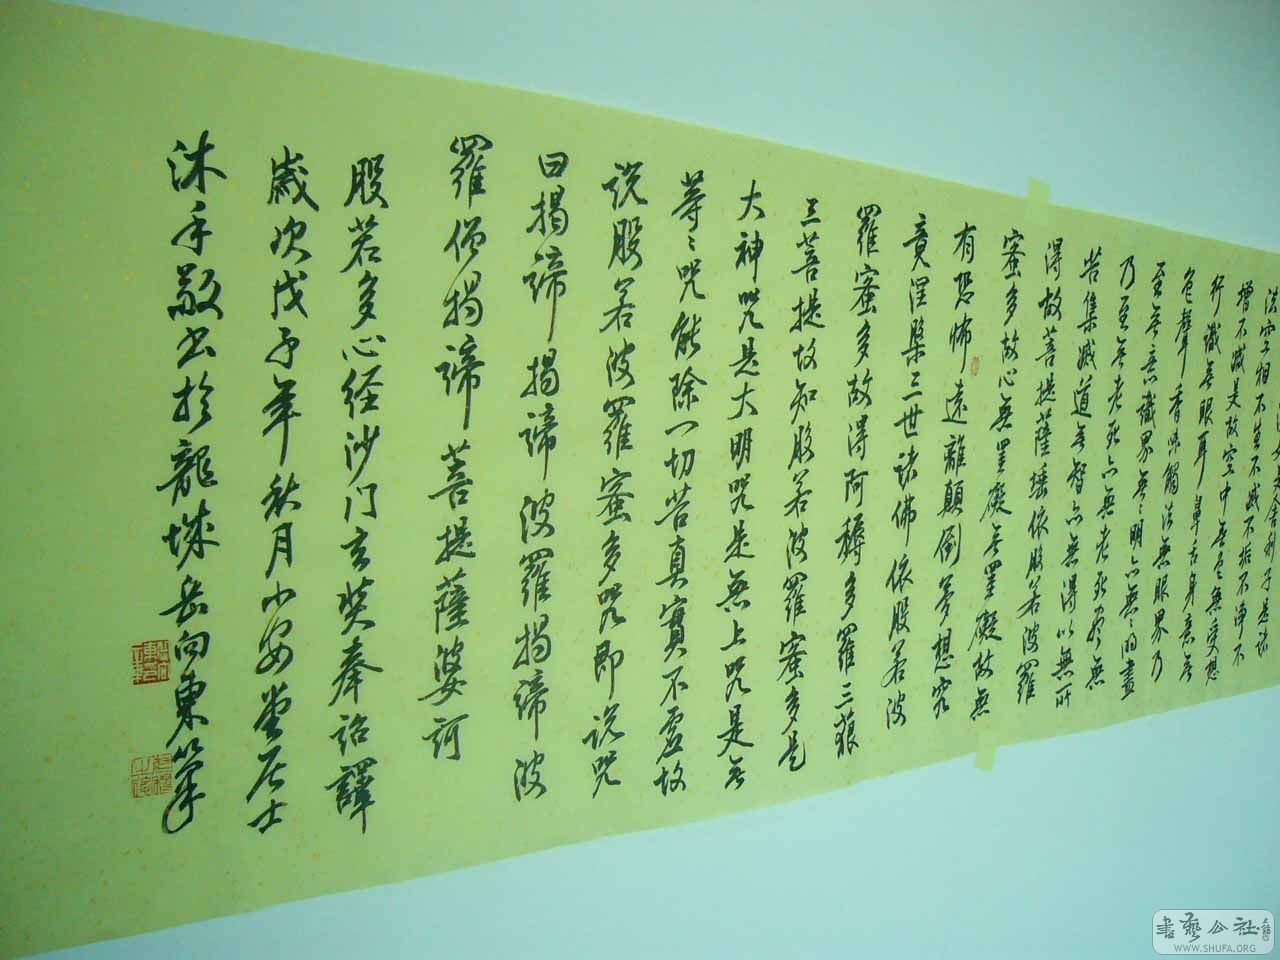 是舍利子是諸
法空相不生不滅不垢不淨不
增不減是故空中無色無受想
行識無眼耳鼻舌身意無
色聲香味觸法無眼界乃
至無意識界無〻明亦無〻明盡
乃至無老死亦無老死盡無
苦集滅道無智亦無得以無所
得故菩提薩埵依般若波羅
蜜多故心無罣礙無罣礙故無
有恐怖遠離顛倒夢想究
竟涅槃三世諸佛依般若波
羅蜜多故得阿耨多羅三藐
三菩提故知般若波羅蜜多是
大神咒是大明咒是無上咒是無
等〻咒能除一切苦真實不虛故
說般若波羅蜜多咒即說咒
曰揭諦揭諦波羅揭諦波
羅僧揭諦菩提薩婆訶
般若多心经沙门玄奘奉詔譯
歲次戊子年秋月小安堂居士
沐手敬书於龍城岳向東筆
書藝公社
WWW.SHUFA.ORG